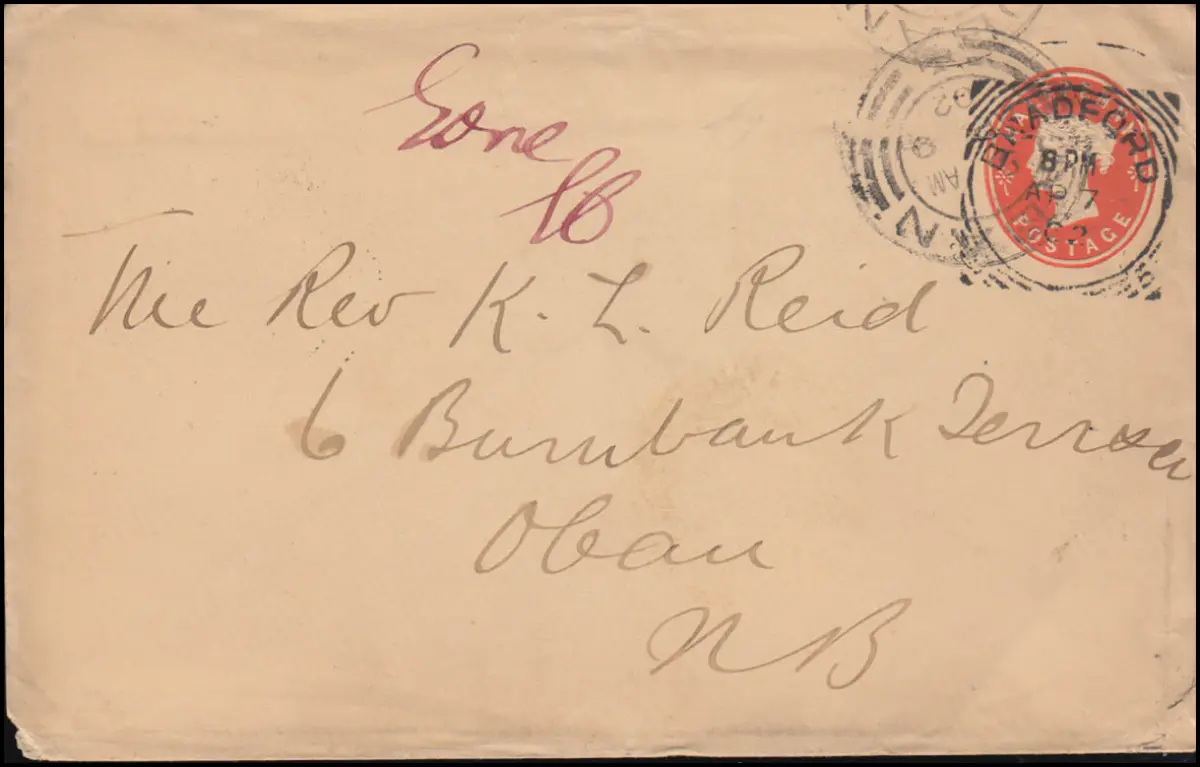 Gone
The Rev K. L. Reid
6 Burnbank Terrace
Oban
NB
BRADFORD
8 PM
AP 7
92
POSTAGE
92
9
AM
N